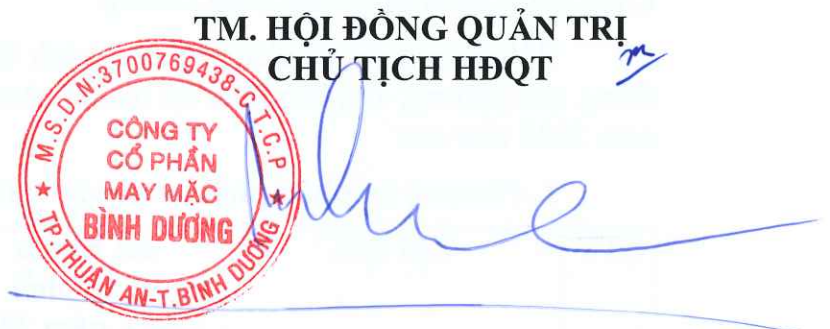 TM. HỘI ĐỒNG QUẢN TRỊ
CHỦ TỊCH HĐQT
M.S.D.N:3700769438-C.T.C.P
CÔNG TY
CỔ PHẦN
MAY MẶC
BÌNH DƯƠNG
TP.THUẬN AN-T.BÌNH DƯƠNG